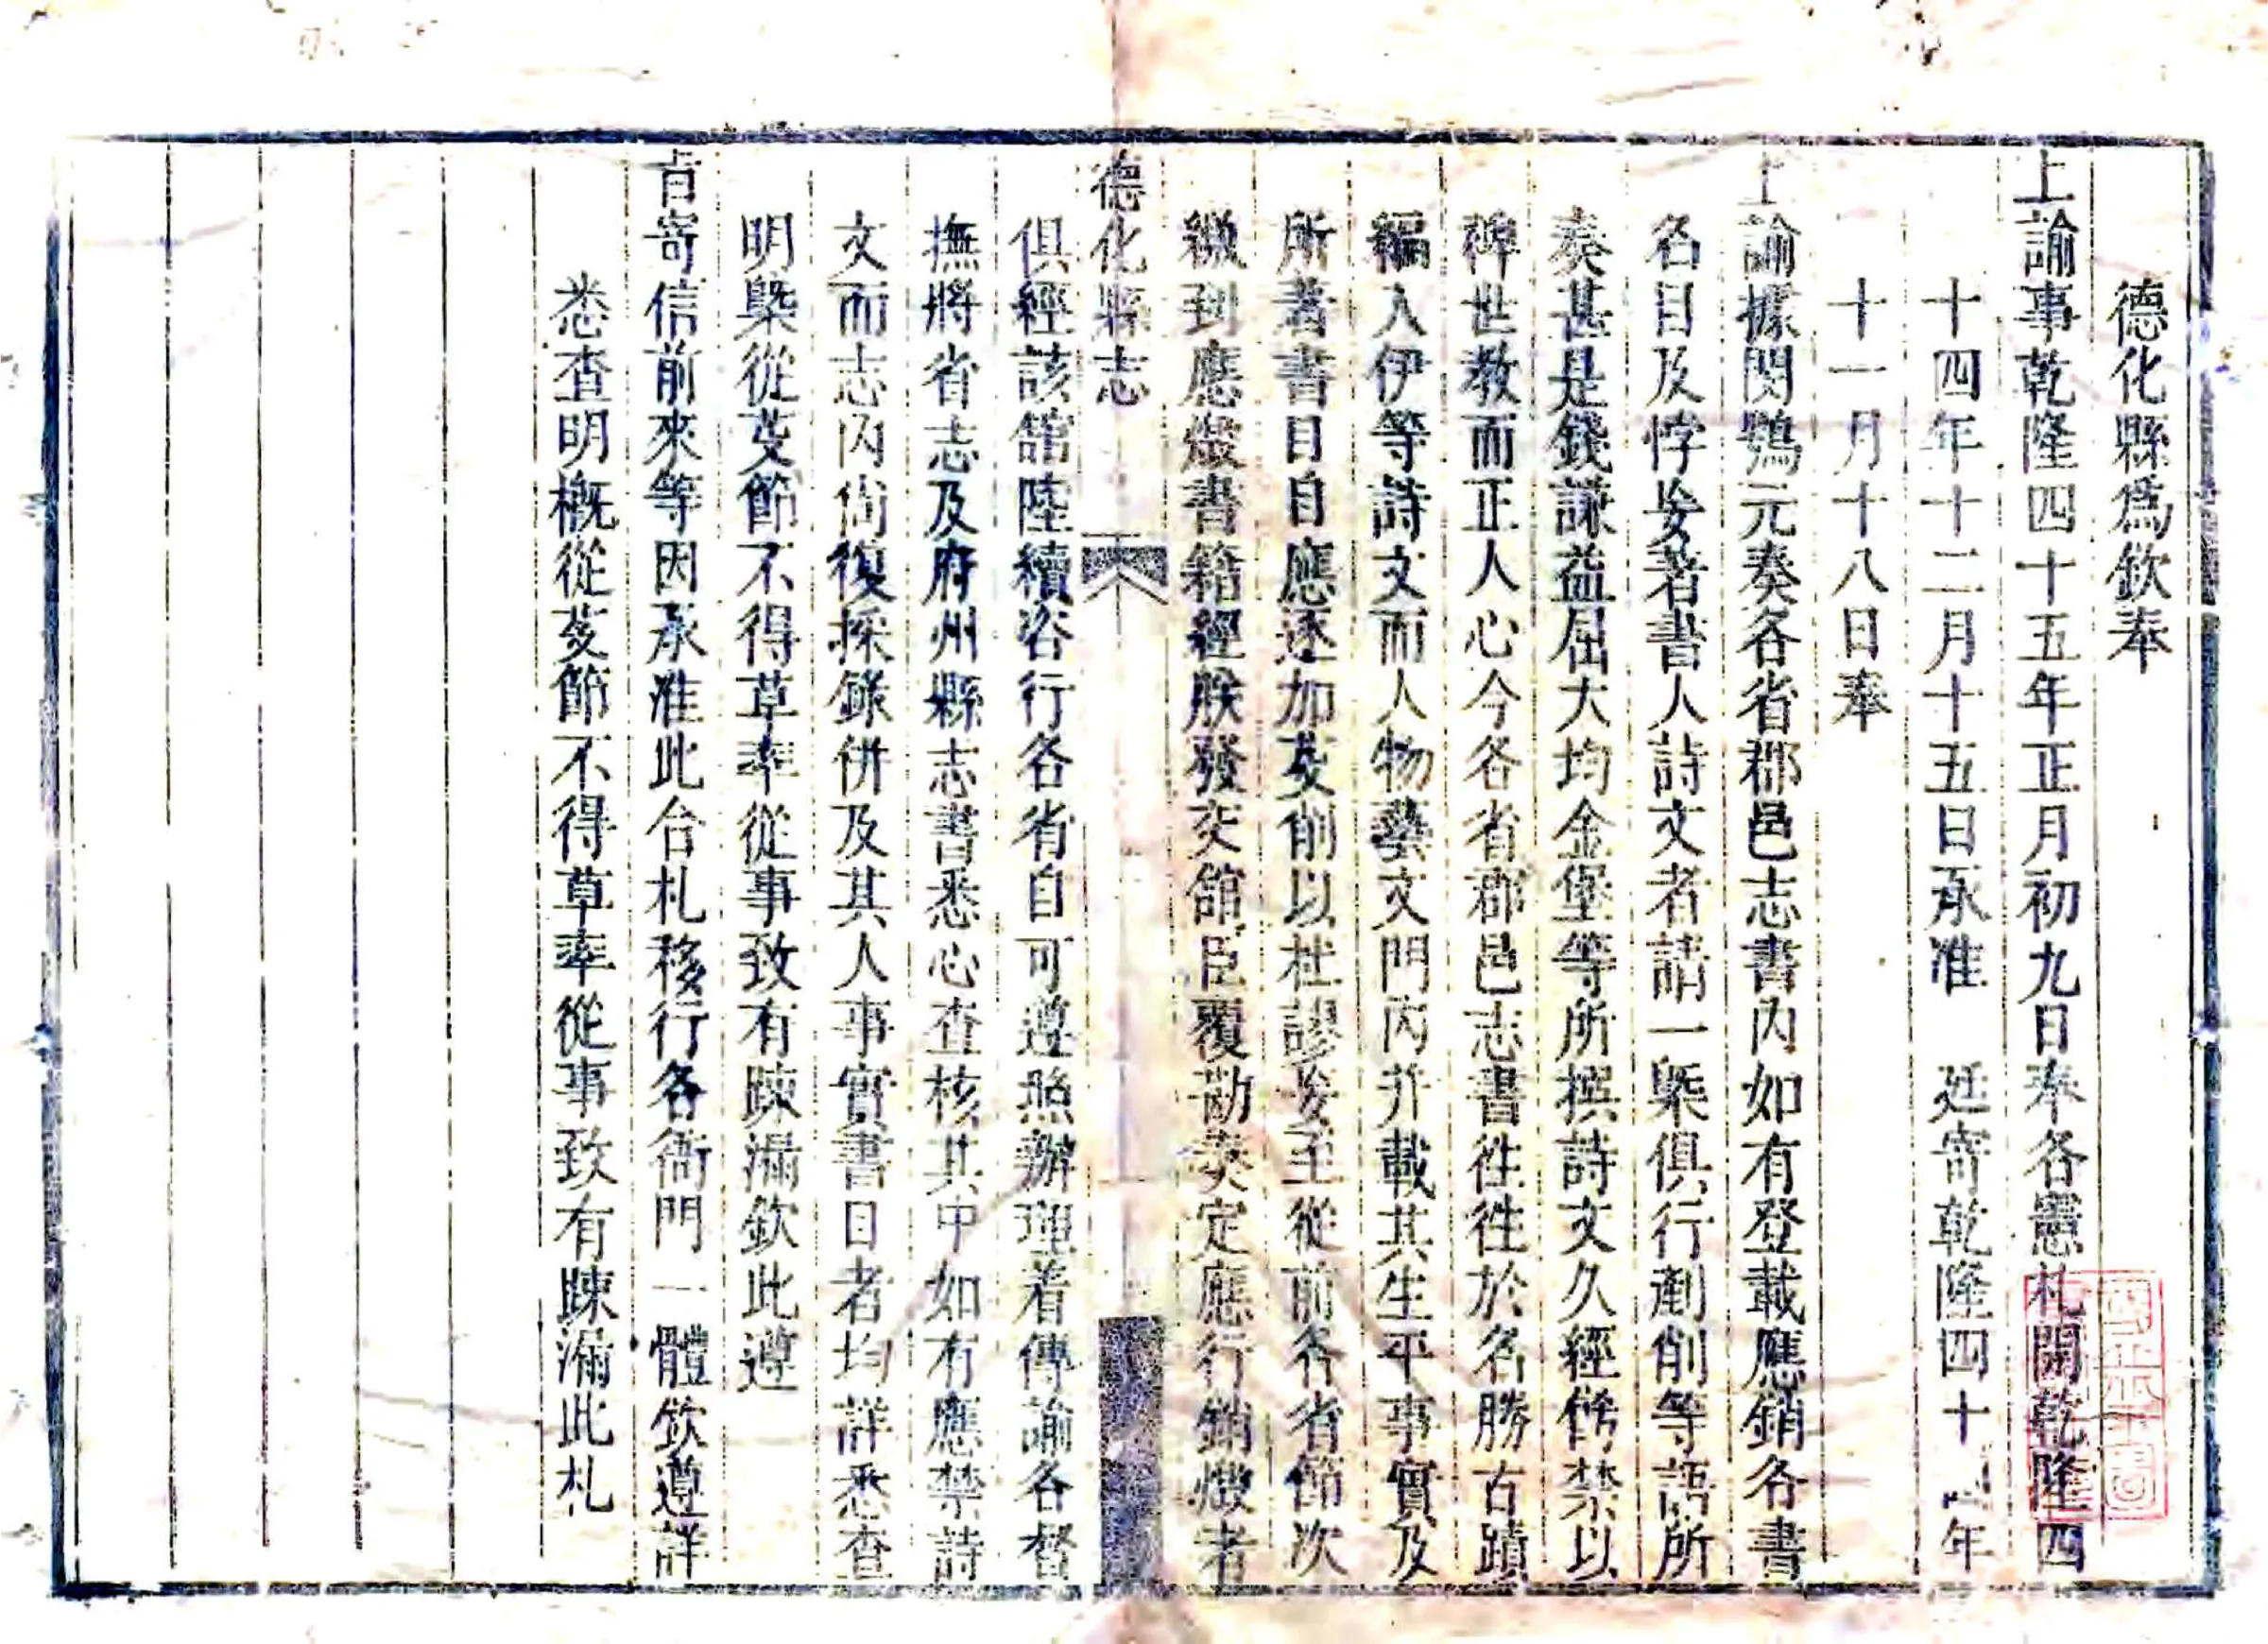 德化縣爲欽奉
上諭事乾隆四十五年正月初九日奉各憲札開乾隆四
十四年十二月十五日承准　廷寄乾隆四十四年
十一月十八日奉
上諭據閔鶚元奏各省郡邑志書內如有登載應銷各書
名目及悖妄著書人詩文者請一槩俱行剷削等語所
奏甚是錢謙益屈大均金堡等所撰詩文久經飭禁以
裨世教而正人心今各省郡邑志書徃徃於名勝古蹟
編入伊等詩文而人物藝文門內并載其生平事實及
所著書目自應逐加芟削以杜謬妄至從前各省節次
繳到應燬書籍經朕發交舘臣覆勘奏定應行銷燬者
德化縣志
俱經該舘陸續咨行各省自可遵照辦理着傳諭各督
撫將省志及府州縣志書悉心查核其中如有應禁詩
文而志內尚復採錄併及其人事實書目者均詳悉查
明槩從芟節不得草率從事致有踈漏欽此遵
旨寄信前來等因承准此合札移行各衙門一體欽遵詳
悉查明概從芟節不得草率從事致有踈漏此札